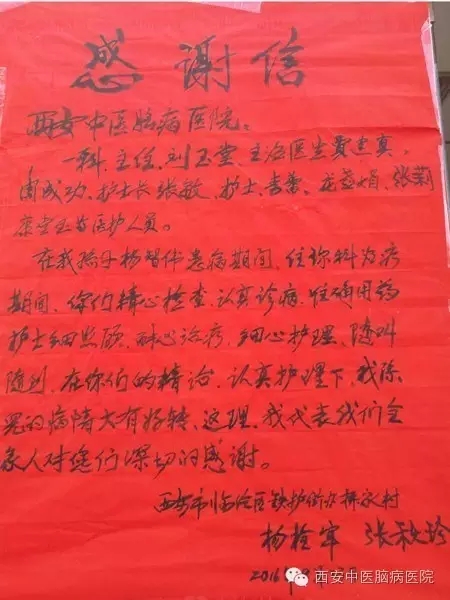 感谢信
西安中医脑病医院：
一科主任刘玉堂、主治医生费
成功、护士长张敏、护士 张莉
医护人员。
在我孙子杨智伟患病期间，住你科治疗
期间，你们精心检查、认真诊病、准确用药
护士细 耐心治疗、细心护理、随叫
随到，在你们的精治、认真护理下，我孙
儿的病情大有好转、这里，我代表我们全
家人对您们深切的感谢。
西安市临 区 街办 村
杨 张秋玲
2016
西安中医脑病医院